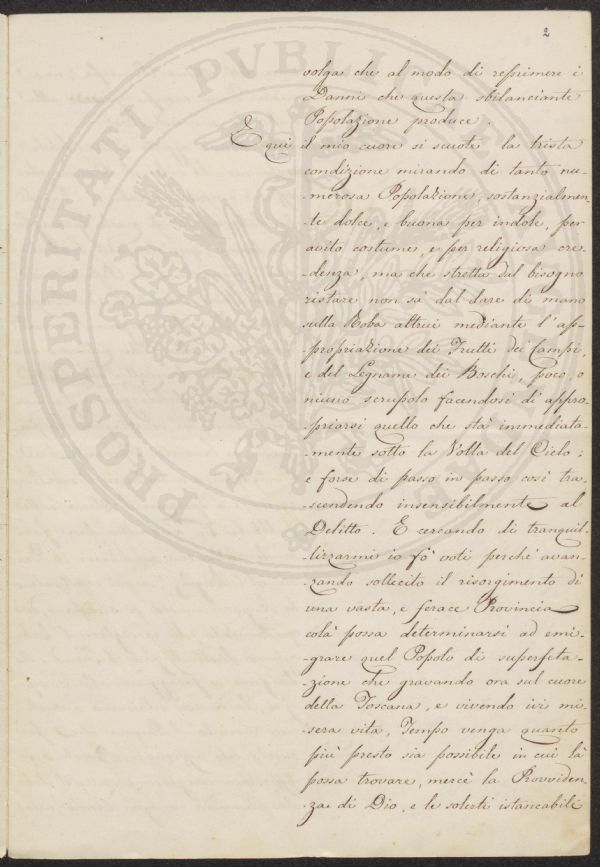 2
volga che al modo di reprimere i
Danni che questa sbilanciante
Popolazione produce.
E qui il mio cuore si scuote la trista
condizione mirando di tanto nu-
-merosa Popolazione, sostanzialmen-
-te dolce, e buona per indole, per
avito costume, e per religiosa cre-
-denza, ma che stretta dal bisogno
ristare non sà dal dare di mano
sulla Roba altrui mediante l'ap-
-propriazione dei Frutti dei Campi,
e del Legname dei Boschi, poco, o
niuno scrupolo facendosi di appro-
-priarsi quello che stà immediata-
-mente sotto la Volta del Cielo;
e forse di passo in passo così tra-
-scendendo insensibilmente al
Delitto. E cercando di tranquil-
-lizzarmi io fò voti perchè avan-
-zando sollecito il risorgimento di
una vasta, e ferace Provincia
colà possa determinarsi ad emi-
-grare quel Popolo di superfeta-
-zione che gravando ora sul cuore
della Toscana, e vivendo ivi mi-
-sera vita, Tempo venga quanto
più presto sia possibile in cui là
possa trovare, mercè la Provviden-
-za di Dio, e le solerti istancabili
PROSPERITATI PVBLI